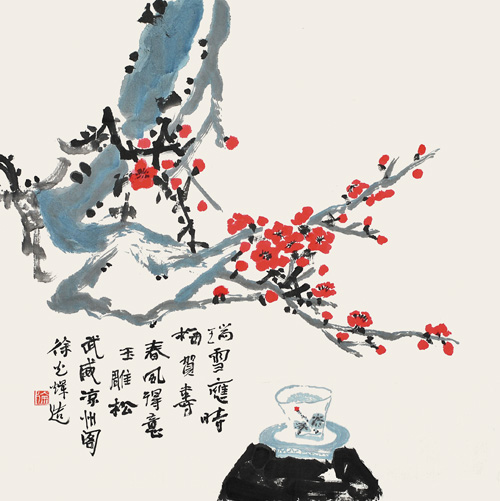 瑞雪應時
梅賀壽
春风得意
玉雕松
武威凉州阁
徐